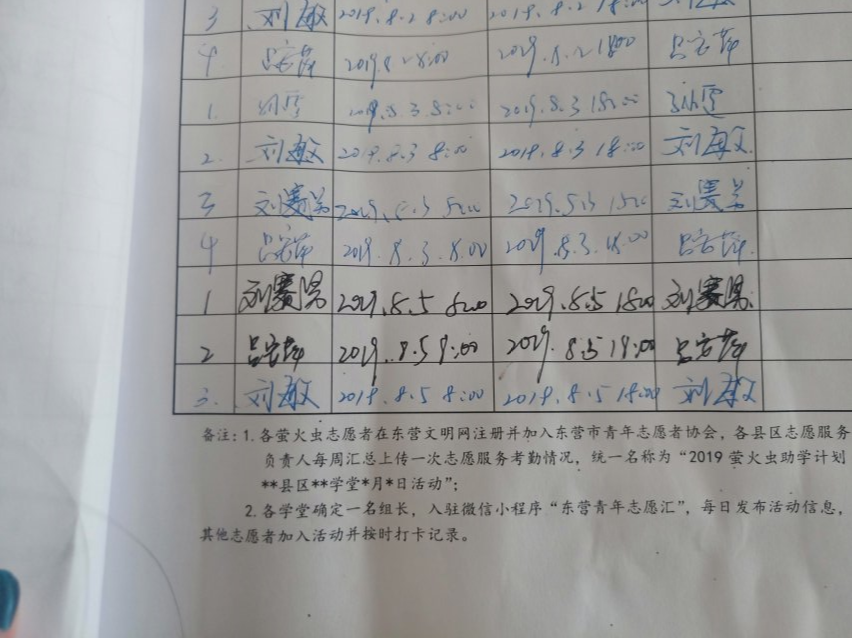 3 刘敏 2019.8.2 8:00 2019.8.2 18:00
4 2019.8.2 8:00 2019.8.2 18:00
1. 2019.8.3 8:00 2019.8.3 18:00
2. 刘敏 2019.8.3 8:00 2019.8.3 18:00 刘敏
3 刘赛男 2019.8.3 8:00 2019.8.3 18:00 刘赛男
4 2019.8.3.8:00 2019.8.3.18:00
1 刘赛男 2019.8.5 8:00 2019.8.5 18:00 刘赛男
2 2019.8.5 8:00 2019.8.5 18:00
3. 刘敏 2019.8.5 8:00 2019.8.5 18:00 刘敏
备注：1. 各萤火虫志愿者在东营文明网注册并加入东营市青年志愿者协会，各县区志愿服务
负责人每周汇总上传一次志愿服务考勤情况，统一名称为“2019 萤火虫助学计划
**县区**学堂*月*日活动”；
2. 各学堂确定一名组长，入驻微信小程序“东营青年志愿汇”，每日发布活动信息，
其他志愿者加入活动并按时打卡记录。